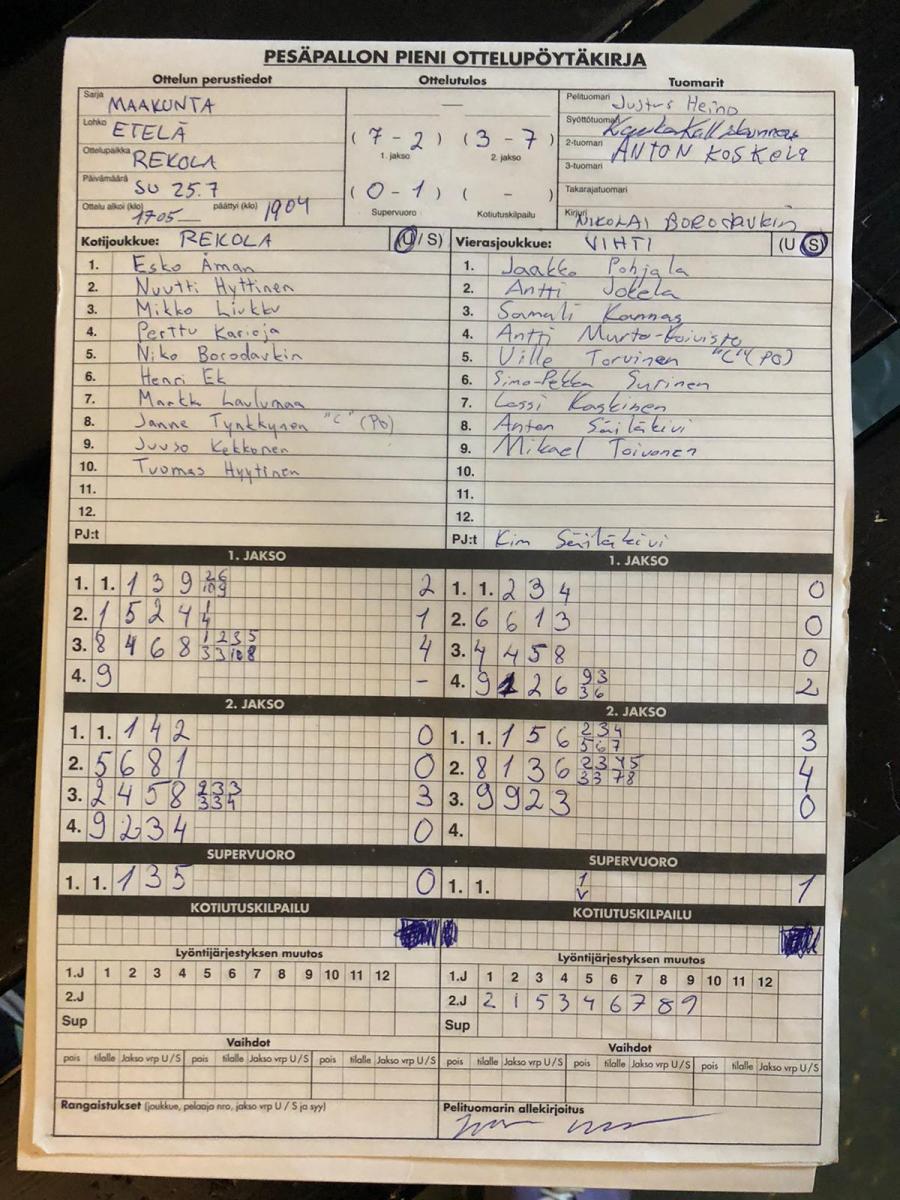 PESÄPALLON PIENI OTTELUPÖYTÄKIRJA
Ottelun perustiedot
Sarja MAAKUNTA
Lohko ETELÄ
Ottelupaikka REKOLA
Päivämäärä SU 25.7
Ottelu alkoi (klo) 1705 päättyi (klo) 1904
Ottelutulos
—
(7 - 2) (3 - 7)
1. jakso 2. jakso
(0 - 1) ( - )
Supervuoro Kotiutuskilpailu
Tuomarit
Pelituomari Justus Heino
Syöttötuomari
2-tuomari ANTON KOSKELA
3-tuomari
Takarajatuomari
Kirjuri NIKOLAI BORODAVKIN
Kotijoukkue: REKOLA (U / S)
1. Esko Åman
2. Nuutti Hyttinen
3. Mikko Liukku
4. Perttu Karioja
5. Niko Borodavkin
6. Henri Ek
7. Markku Laulumaa
8. Janne Tynkkynen "C" (PO)
9. Juuso Kekkonen
10. Tuomas Hyytinen
11.
12.
PJ:t
Vierasjoukkue: VIHTI (U S)
1. Jaakko Pohjala
2. Antti Jokela
3. Samuli Kannas
4. Antti Murto-Koivisto
5. Ville Torvinen "C" (PO)
6. Simo-Pekka Surinen
7. Lassi Koskinen
8. Anton Säiläkivi
9. Mikael Toivonen
10.
11.
12.
PJ:t Kim Säiläkivi
1. JAKSO
1. 1. 1 3 9 26 109 2
2. 1 5 2 4 1 4 1
3. 8 4 6 8 1 2 3 5 3 3 10 8 4
4. 9 -
2. JAKSO
1. 1. 1 4 2 0
2. 5 6 8 1 0
3. 2 4 5 8 2 3 3 3 3 4 3
4. 9 2 3 4 0
SUPERVUORO
1. 1. 1 3 5 0
KOTIUTUSKILPAILU
1. JAKSO
1. 1. 2 3 4 0
2. 6 6 1 3 0
3. 4 4 5 8 0
4. 9 2 6 9 3 3 6 2
2. JAKSO
1. 1. 1 5 6 2 3 4 5 6 7 3
2. 8 1 3 6 2 3 4 5 3 3 7 8 4
3. 9 9 2 3 0
4.
SUPERVUORO
1. 1. 1 V 1
KOTIUTUSKILPAILU
Lyöntijärjestyksen muutos
1.J 1 2 3 4 5 6 7 8 9 10 11 12
2.J
Sup
Vaihdot
pois tilalle Jakso vrp U / S pois tilalle Jakso vrp U / S pois tilalle Jakso vrp U / S
Rangaistukset (joukkue, pelaaja nro, jakso vrp U / S ja syy)
Lyöntijärjestyksen muutos
1.J 1 2 3 4 5 6 7 8 9 10 11 12
2.J 2 1 5 3 4 6 7 8 9
Sup
Vaihdot
pois tilalle Jakso vrp U / S pois tilalle Jakso vrp U / S pois tilalle Jakso vrp U / S
Pelituomarin allekirjoitus